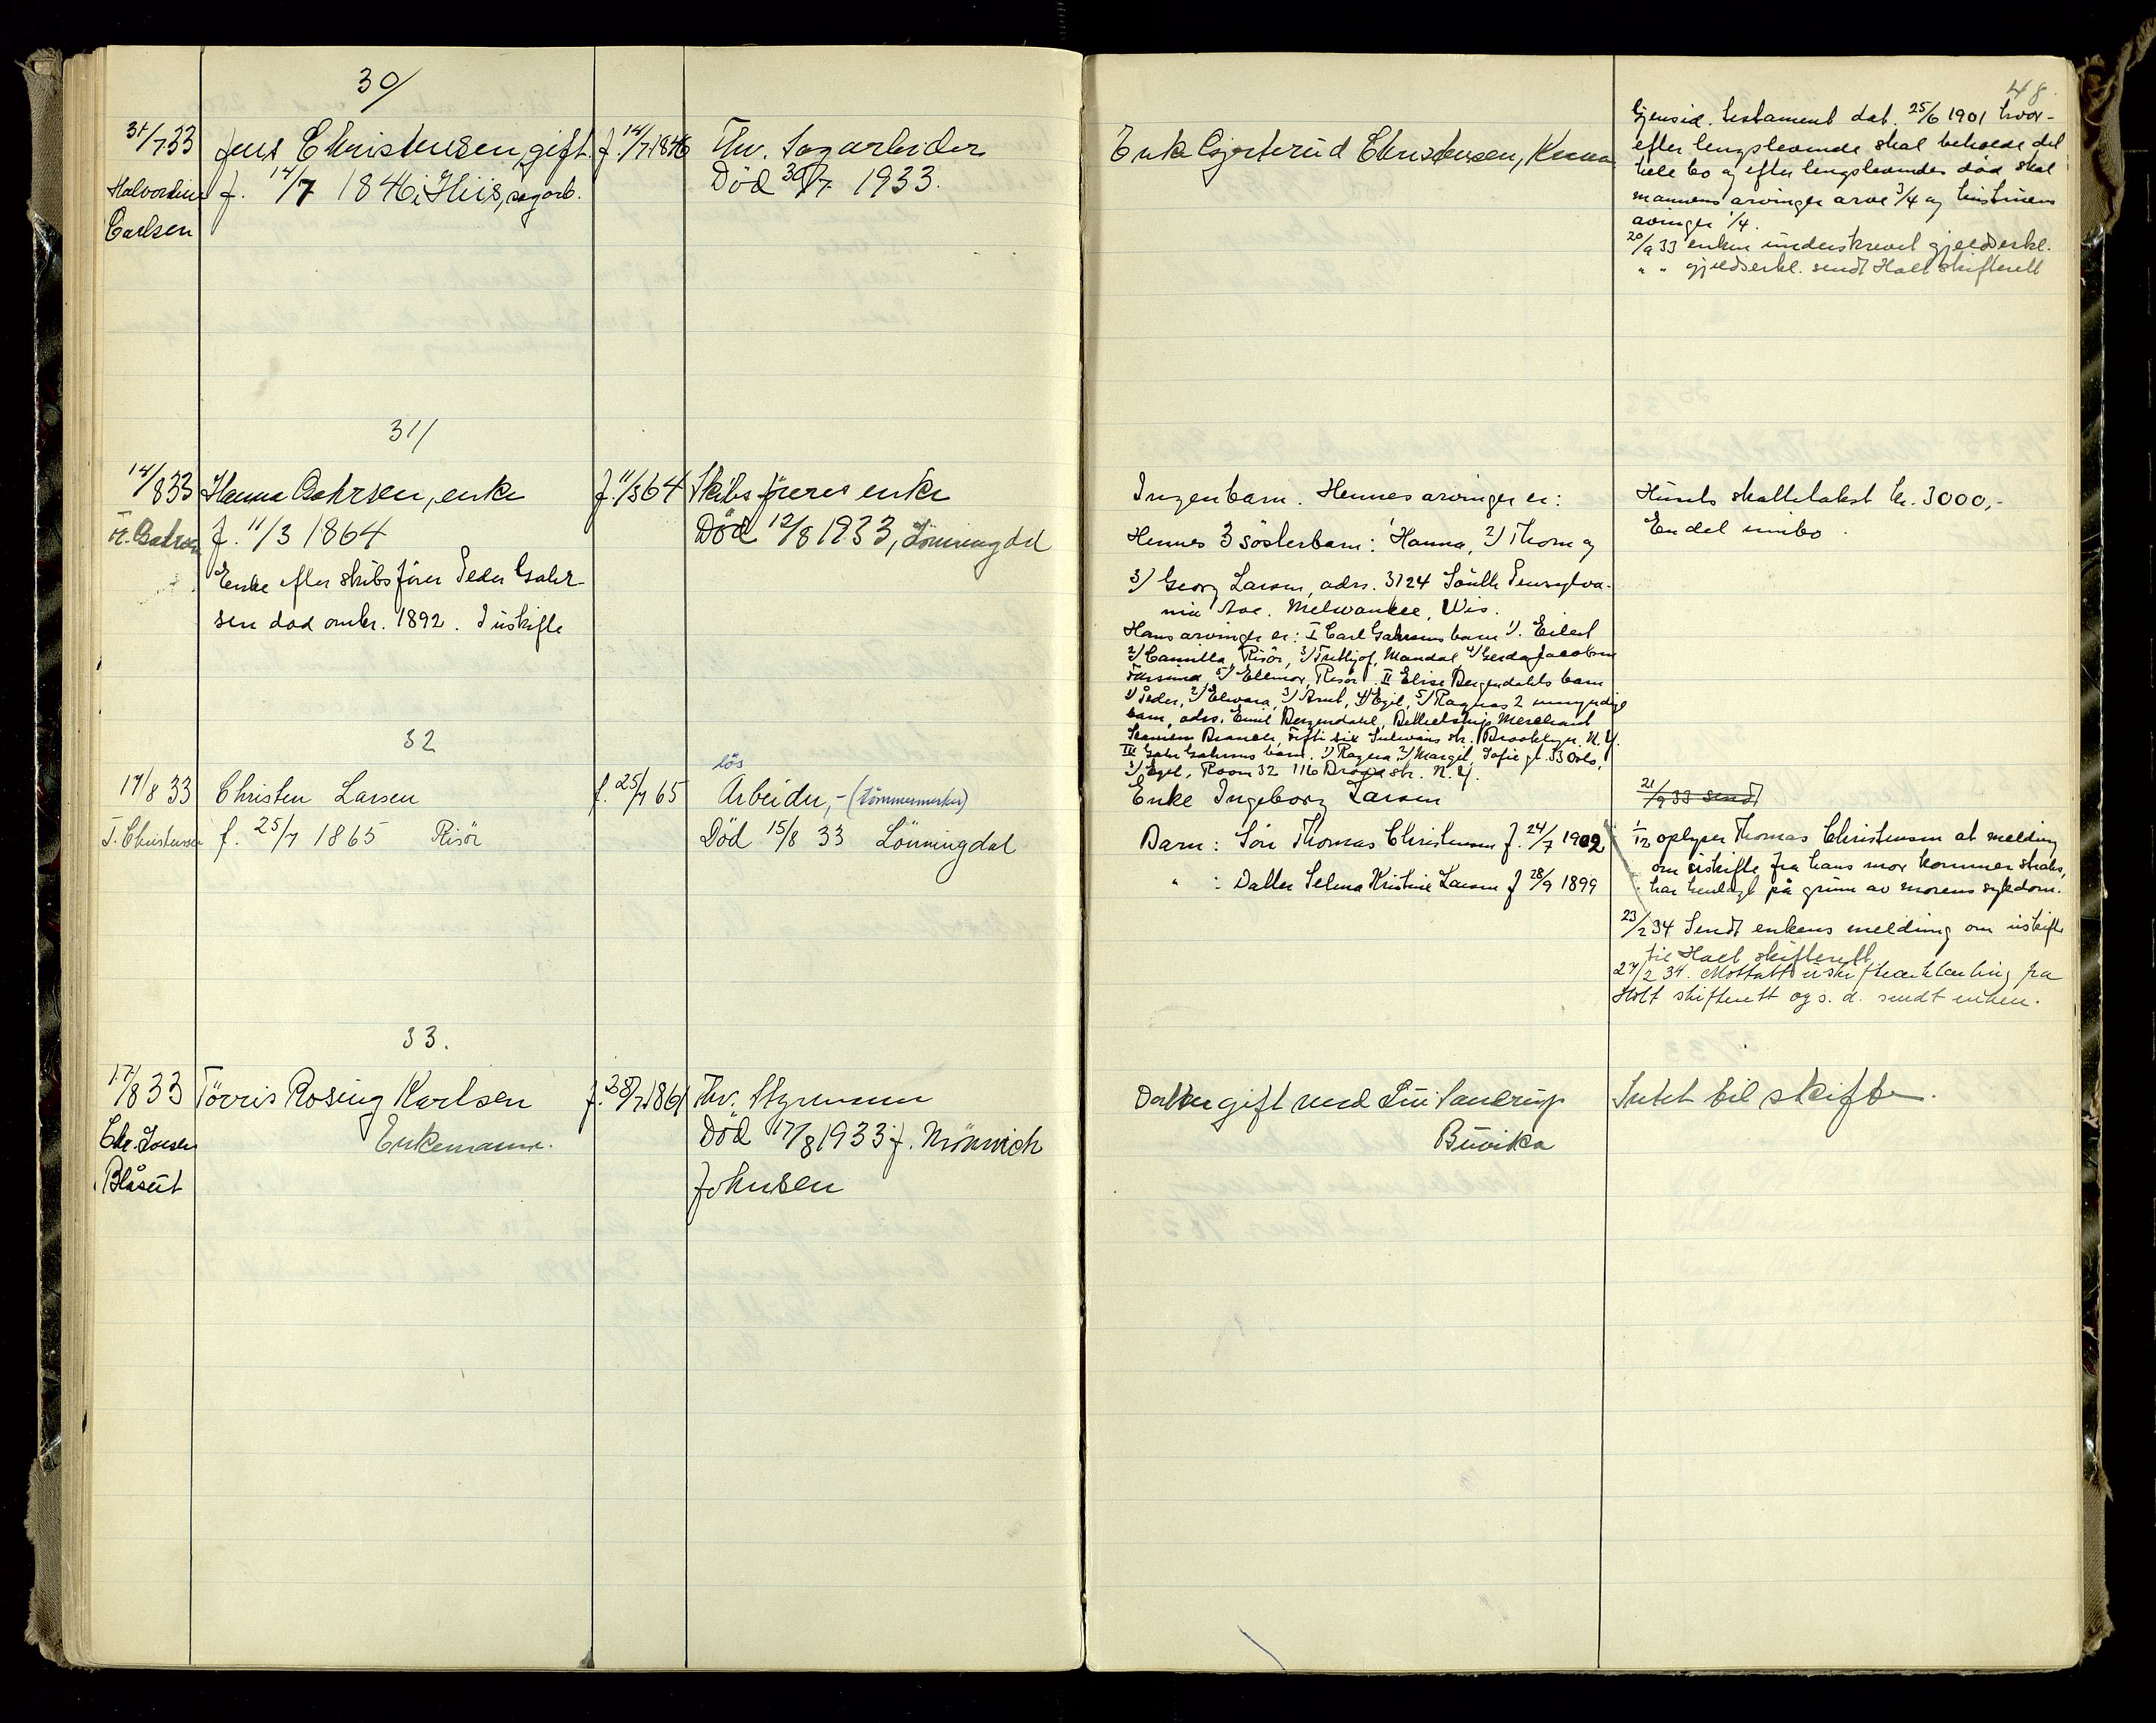 48.
30/
31/7 33
Halvordine
Carlsen
Jens Christensen, gift.
f. 14/7 1846 i Hiis, sagarb.
f. 14/7 1846
Fhv. Sagarbeider
Död 30/7 1933.
Enke Gjerterud Christensen,
Gjensid. testament dat. 25/6 1901 hvor-
efter lengstlevende skal beholde det
hele bo og efter lengstlevendes död skal
mannens arvinger arve 3/4 og hustruens
arvinger 1/4.
20/9 33 enken underskrevet gjeldserkl.
" " gjeldserkl. sendt Holt skifterett
31/
14/8 33
Hanna Gahrsen, enke
f. 11/3 1864
Enke efter skibsförer Peder Gahr-
sen död omkr. 1892. I uskifte
f. 11/3 64
Skibsföreres enke
Död 12/8 1933, Lönningdal
Ingen barn. Hennes arvinger er:
Hennes 3 sösterbarn: 1 Hanna, 2) Thom og
3) Georg Larsen, adrs. 3124 South Pensylva-
nia Ave. Melwaukee, Wis.
Hans arvinger er: I Carl Gahrsens barn 1). Eilert
2) Camilla, Risör, 3) Fritjof, Mandal 4) Gerda Jacobsen
Farsund 5) Ellinor, Risör. II Elise Bergendahls barn
1) Peder, 2) Elvara, 3) Arnt, 4) Egil, 5) Ragnas 2 umyndige
barn, adrs. Emil Bergendahl, Merchant
Seamen Branch, fifti six Sulwans str. Brooklyn. N.Y.
III Gahr Gahrsens barn. 1) Ragna 2) Margit, Sofie gt. 53 Oslo,
3) Egil, Room 32 116 Broad str. N.Y.
Husets skattetakst kr. 3000,-
Endel innbo.
32
17/8 33
T. Christensen
Christen Larsen
f. 25/7 1865 Risör
f. 25/7 65
lös
Arbeider,- (tömmermerker)
Död 15/8 33 Lönningdal
Enke Ingeborg Larsen
Barn: Sön Thomas Christensen f. 24/7 1902
" : Datter Selma Kristine Larsen f 28/9 1899
21/9 33 sendt
1/12 oplyser Thomas Christensen at melding
om uskifte fra hans mor kommer straks,
har henlagt på grunn av morens sykdom.
23/2 34 Sendt enkens melding om uskifte
til Holt skifterett
27/2 34. Mottatt uskifteerklæring fra
Holt skifterett og s. d. sendt enken.
33.
17/8 33
Chr. Joensen
Blåsut
Törris Rosing Karlsen
Enkemann.
f. 28/7 1861
Fhv. Styrmann
Död 17/8 1933 f.
Johnsen
Datter gift med
Buvika
Intet til skifte.